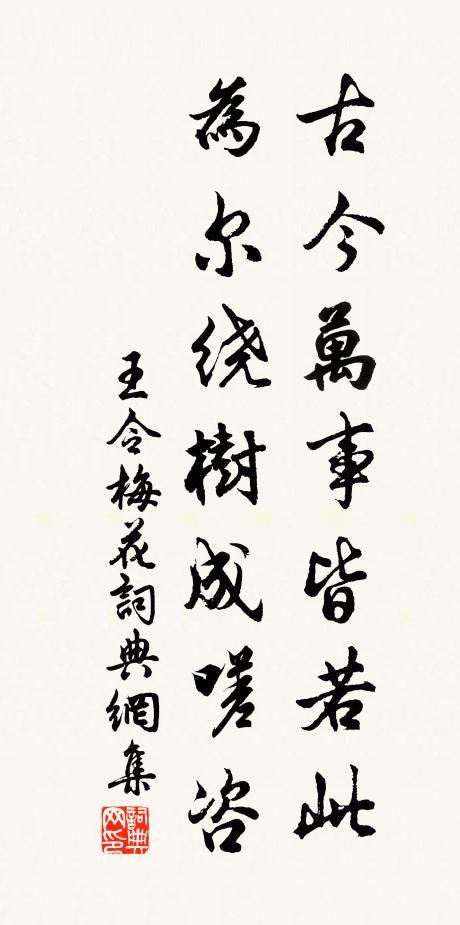 古今萬事皆若此
為尔绕樹成嗟咨
王令梅花詞典網集
詞典網印